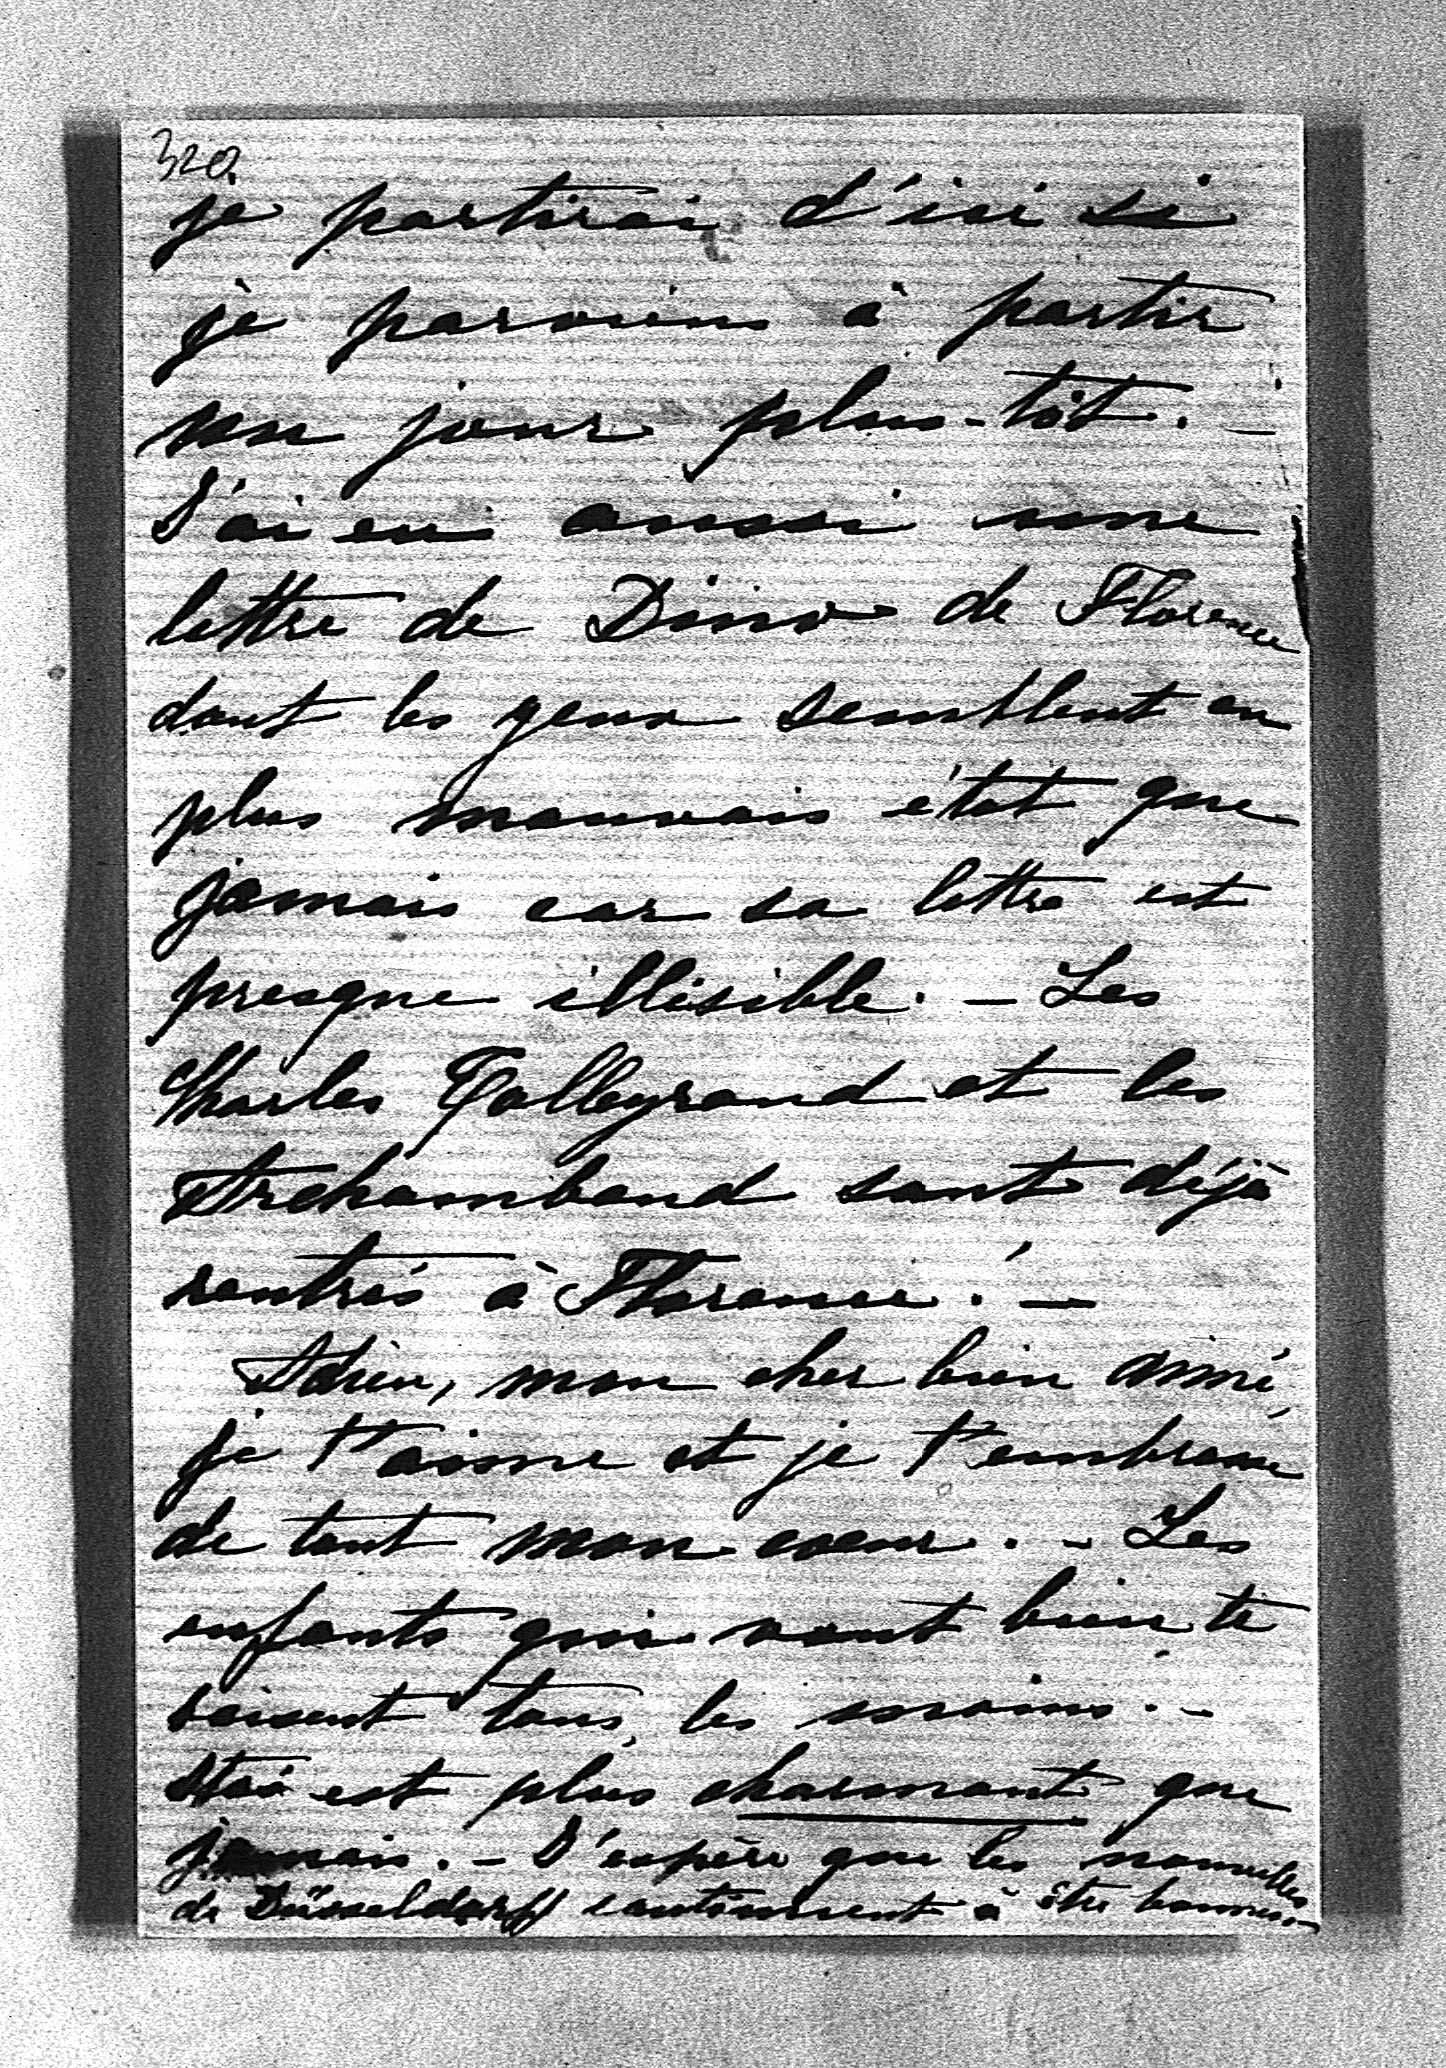 320.
je partirai d'ici si
je parviens à partir
un jour plus-tôt. —
J'ai eu aussi une
lettre de Dino de Florence
dont les yeux semblent en
plus mauvais état que
jamais car sa lettre est
presque illisible. — Les
Charles Talleyrand et les
Archambaud sont déjà
rentrés à Florence. —
Adieu, mon cher bien aimé,
je t'aime et je t'embrasse
de tout mon cœur. - Les
enfants qui vont bien te
baisent tous les mains. -
est plus charmant que
jamais. - J'espère que les nouvelles
de Düsseldorff continuent à être bonnes